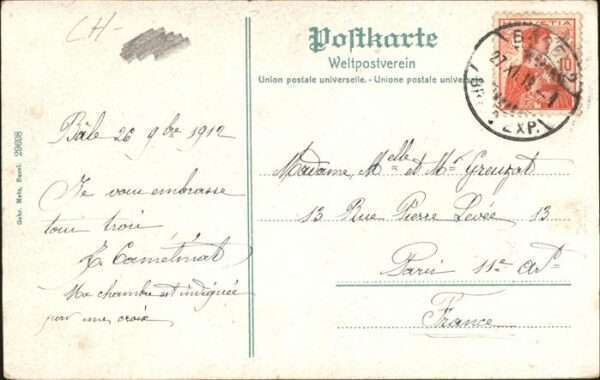 CH-
Postkarte
Weltpostverein
Union postale universelle. - Unione postale univers
HELVETIA
10
BASEL 2
27.XI.12.-1
BRF. EXP.
Gebr. Metz, Basel. 29608
Bâle 26 9bre 1912
Je vous embrasse
tous trois
Ma chambre est indiquée
par une croix
Madame, Melle et Mr Greuzat
13 Rue Pierre Levée 13
Paris 11e Art
France